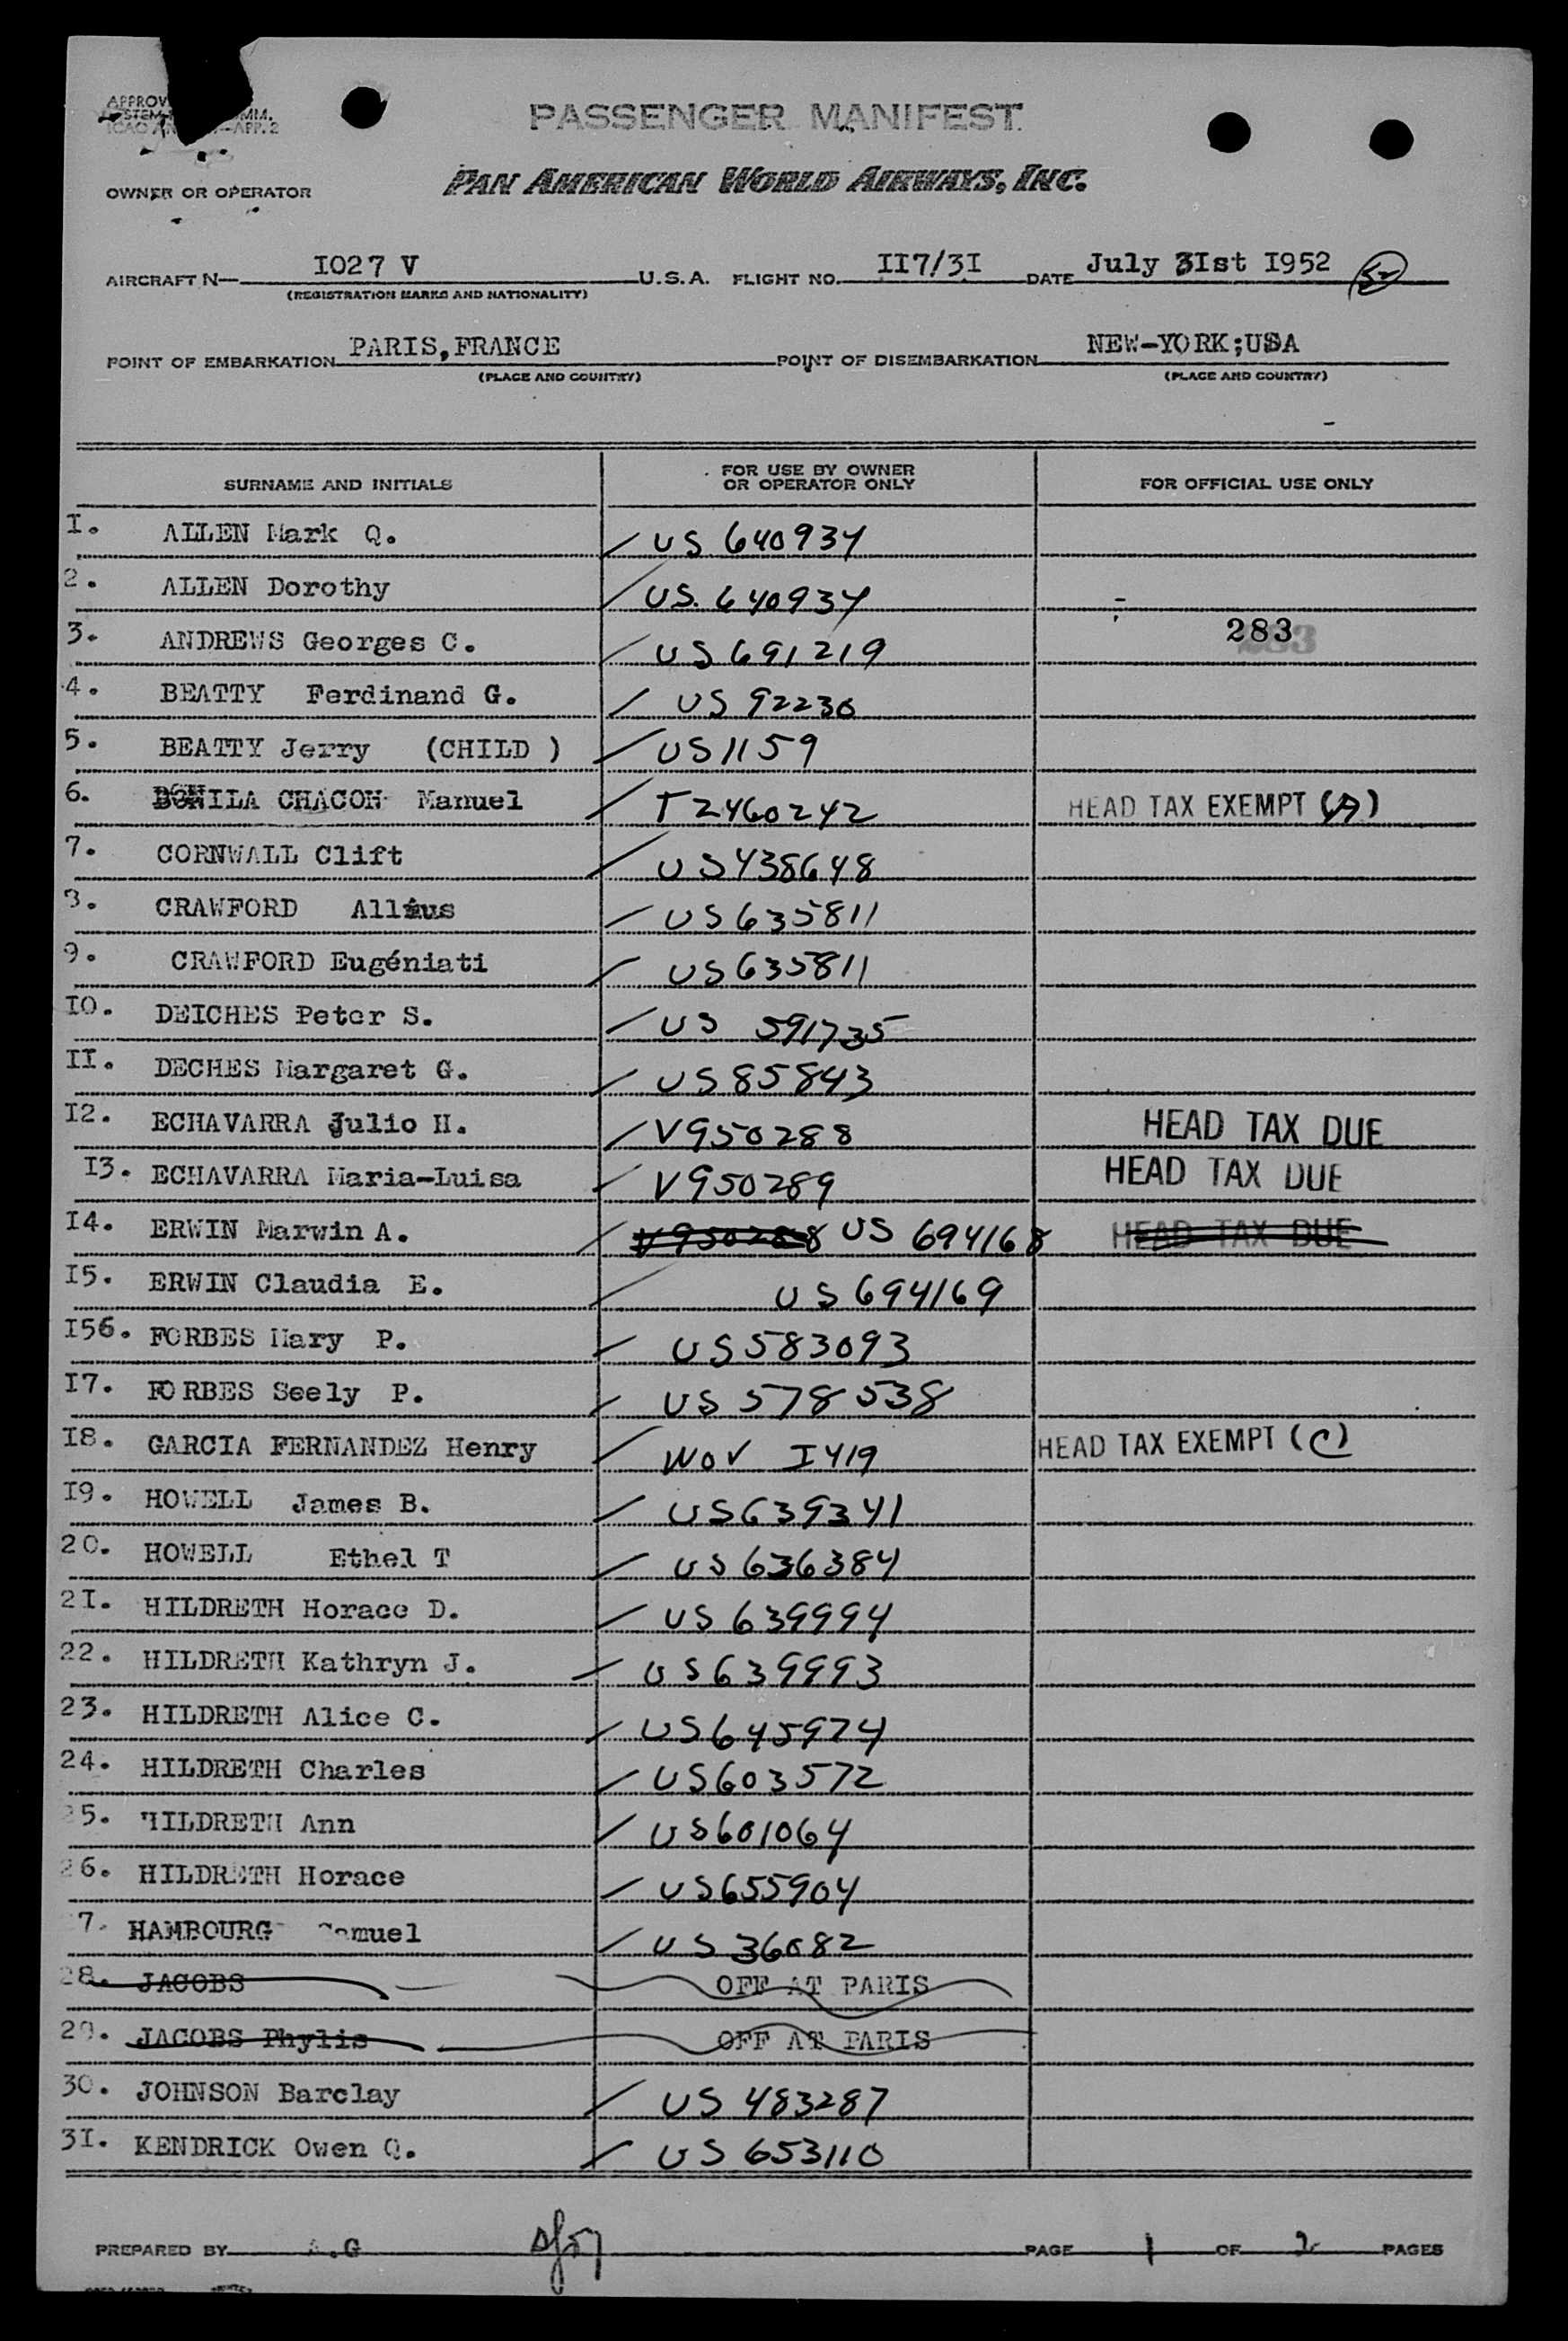 PASSENGER MANIFEST
PAN AMERICAN WORLD AIRWAYS, INC.
OWNER OR OPERATOR
AIRCRAFT N— I027 V U.S.A. FLIGHT NO. II7/3I DATE July 3Ist I952 52
(REGISTRATION MARKS AND NATIONALITY)
POINT OF EMBARKATION PARIS,FRANCE POINT OF DISEMBARKATION NEW-YORK;USA
(PLACE AND COUNTRY) (PLACE AND COUNTRY)
SURNAME AND INITIALS FOR USE BY OWNER OR OPERATOR ONLY FOR OFFICIAL USE ONLY
I. ALLEN Mark Q. US 640934
2. ALLEN Dorothy US. 640934
3. ANDREWS Georges C. US 691219 283
4. BEATTY Ferdinand G. US 92230
5. BEATTY Jerry (CHILD ) US1159
6. BONILA CHACON Manuel T 2460242 HEAD TAX EXEMPT (A)
7. CORNWALL Clift US438648
8. CRAWFORD US635811
9. CRAWFORD Eugéniati US635811
IO. DEICHES Peter S. US 591735
II. DECHES Margaret G. US85843
I2. ECHAVARRA Julio H. V950288 HEAD TAX DUE
I3. ECHAVARRA Maria-Luisa V950289 HEAD TAX DUE
I4. ERWIN Marwin A. V950288 US 694168 HEAD TAX DUE
I5. ERWIN Claudia E. US 694169
I56. FORBES Mary P. US583093
I7. FORBES Seely P. US 578538
I8. GARCIA FERNANDEZ Henry WOV I419 HEAD TAX EXEMPT (C)
I9. HOWELL James B. US639341
20. HOWELL Ethel T US 636384
2I. HILDRETH Horace D. US 639994
22. HILDRETH Kathryn J. US639993
23. HILDRETH Alice C. US645974
24. HILDRETH Charles US603572
25. HILDRETH Ann US601064
26. HILDRETH Horace US655904
7. HAMBOURG Samuel US 36082
28. JACOBS OFF AT PARIS
29. JACOBS Phylis OFF AT PARIS
30. JOHNSON Barclay US 483287
3I. KENDRICK Owen Q. US 653110
PREPARED BY A.G PAGE 1 OF 2 PAGES